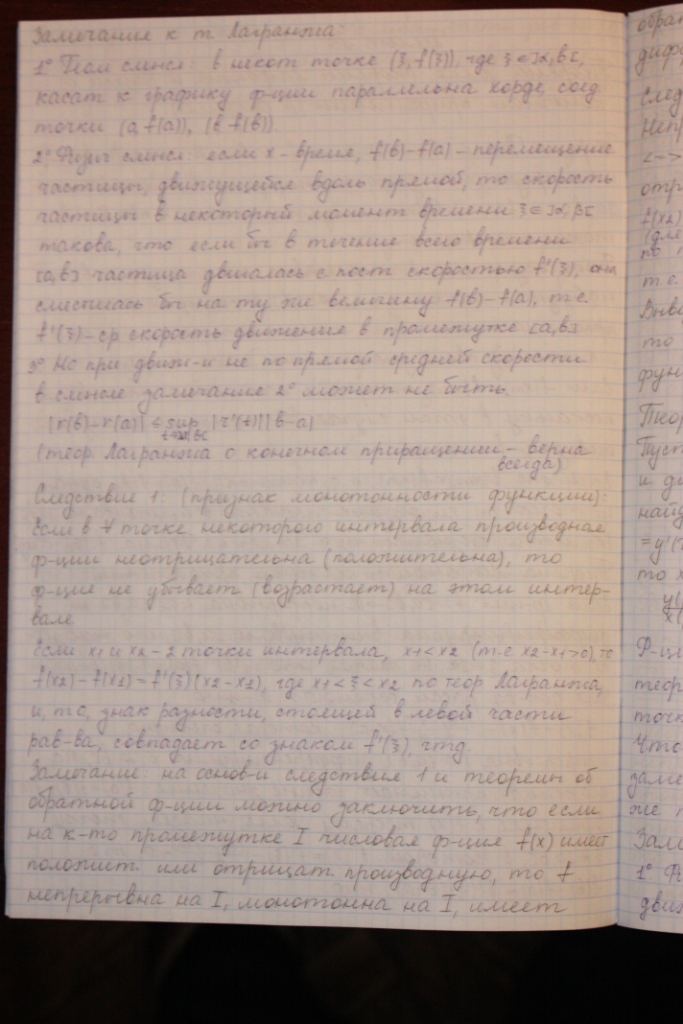 Замечание к т. Лагранжа:
1° Геом смысл: в некот точке (ξ, f(ξ)), где ξ ∈ ]a, b[,
касат к графику ф-ции параллельна хорде, соед.
точки (a, f(a)), (b f(b))
2° Физич смысл: если x - время, f(b)-f(a) - перемещение
частицы, движущейся вдоль прямой, то скорость
частицы в некоторый момент времени ξ ∈ ]a, b[
такова, что если бы в течение всего времени
[a,b] частица двигалась с пост скоростью f'(ξ), она
сместилась бы на ту же величину f(b)-f(a), т.е.
f'(ξ) - ср скорость движения в промежутке [a,b]
3° Но при движ-и не по прямой средней скорости
в смысле замечание 2° может не быть.
|r(b)-r(a)| ≤ sup |r'(t)||b-a|
(теор Лагранжа о конечном приращении - верна
всегда)
Следствие 1: (признак монотонности функции):
Если в ∀ точке некоторого интервала производная
ф-ции неотрицательна (положительна), то
ф-ция не убывает (возрастает) на этом интер-
вале
Если x1 и x2 - 2 точки интервала, x1 < x2 (т.е x2-x1>0), то
f(x2) - f(x1) = f'(ξ)(x2-x1), где x1 < ξ < x2 по теор Лагранжа,
и, то, знак разности, стоящей в левой части
рав-ва, совпадает со знаком f'(ξ), чтд.
Замечание: на основ-и следствия 1 и теоремы об
обратной ф-ции можно заключить, что если
на к-то промежутке I числовая ф-ция f(x) имеет
положит. или отрицат. производную, то f
непрерывна на I, монотонна на I, имеет